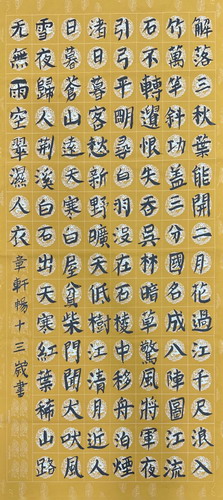 解落三秋葉能開二月花過江千尺浪入
竹萬竿斜功蓋三分國名成八陣圖江流
石不轉遺恨失吞吳林暗草驚風將軍夜
引弓平明尋白羽沒在石棱中移舟泊煙
渚日暮客愁新野曠天低樹江清月近人
日暮蒼山遠天寒白屋貧柴門聞犬吠風
雪夜歸人荊溪白石出天寒紅葉稀山路
元無雨空翠濕人衣
章軒暢十三歲書